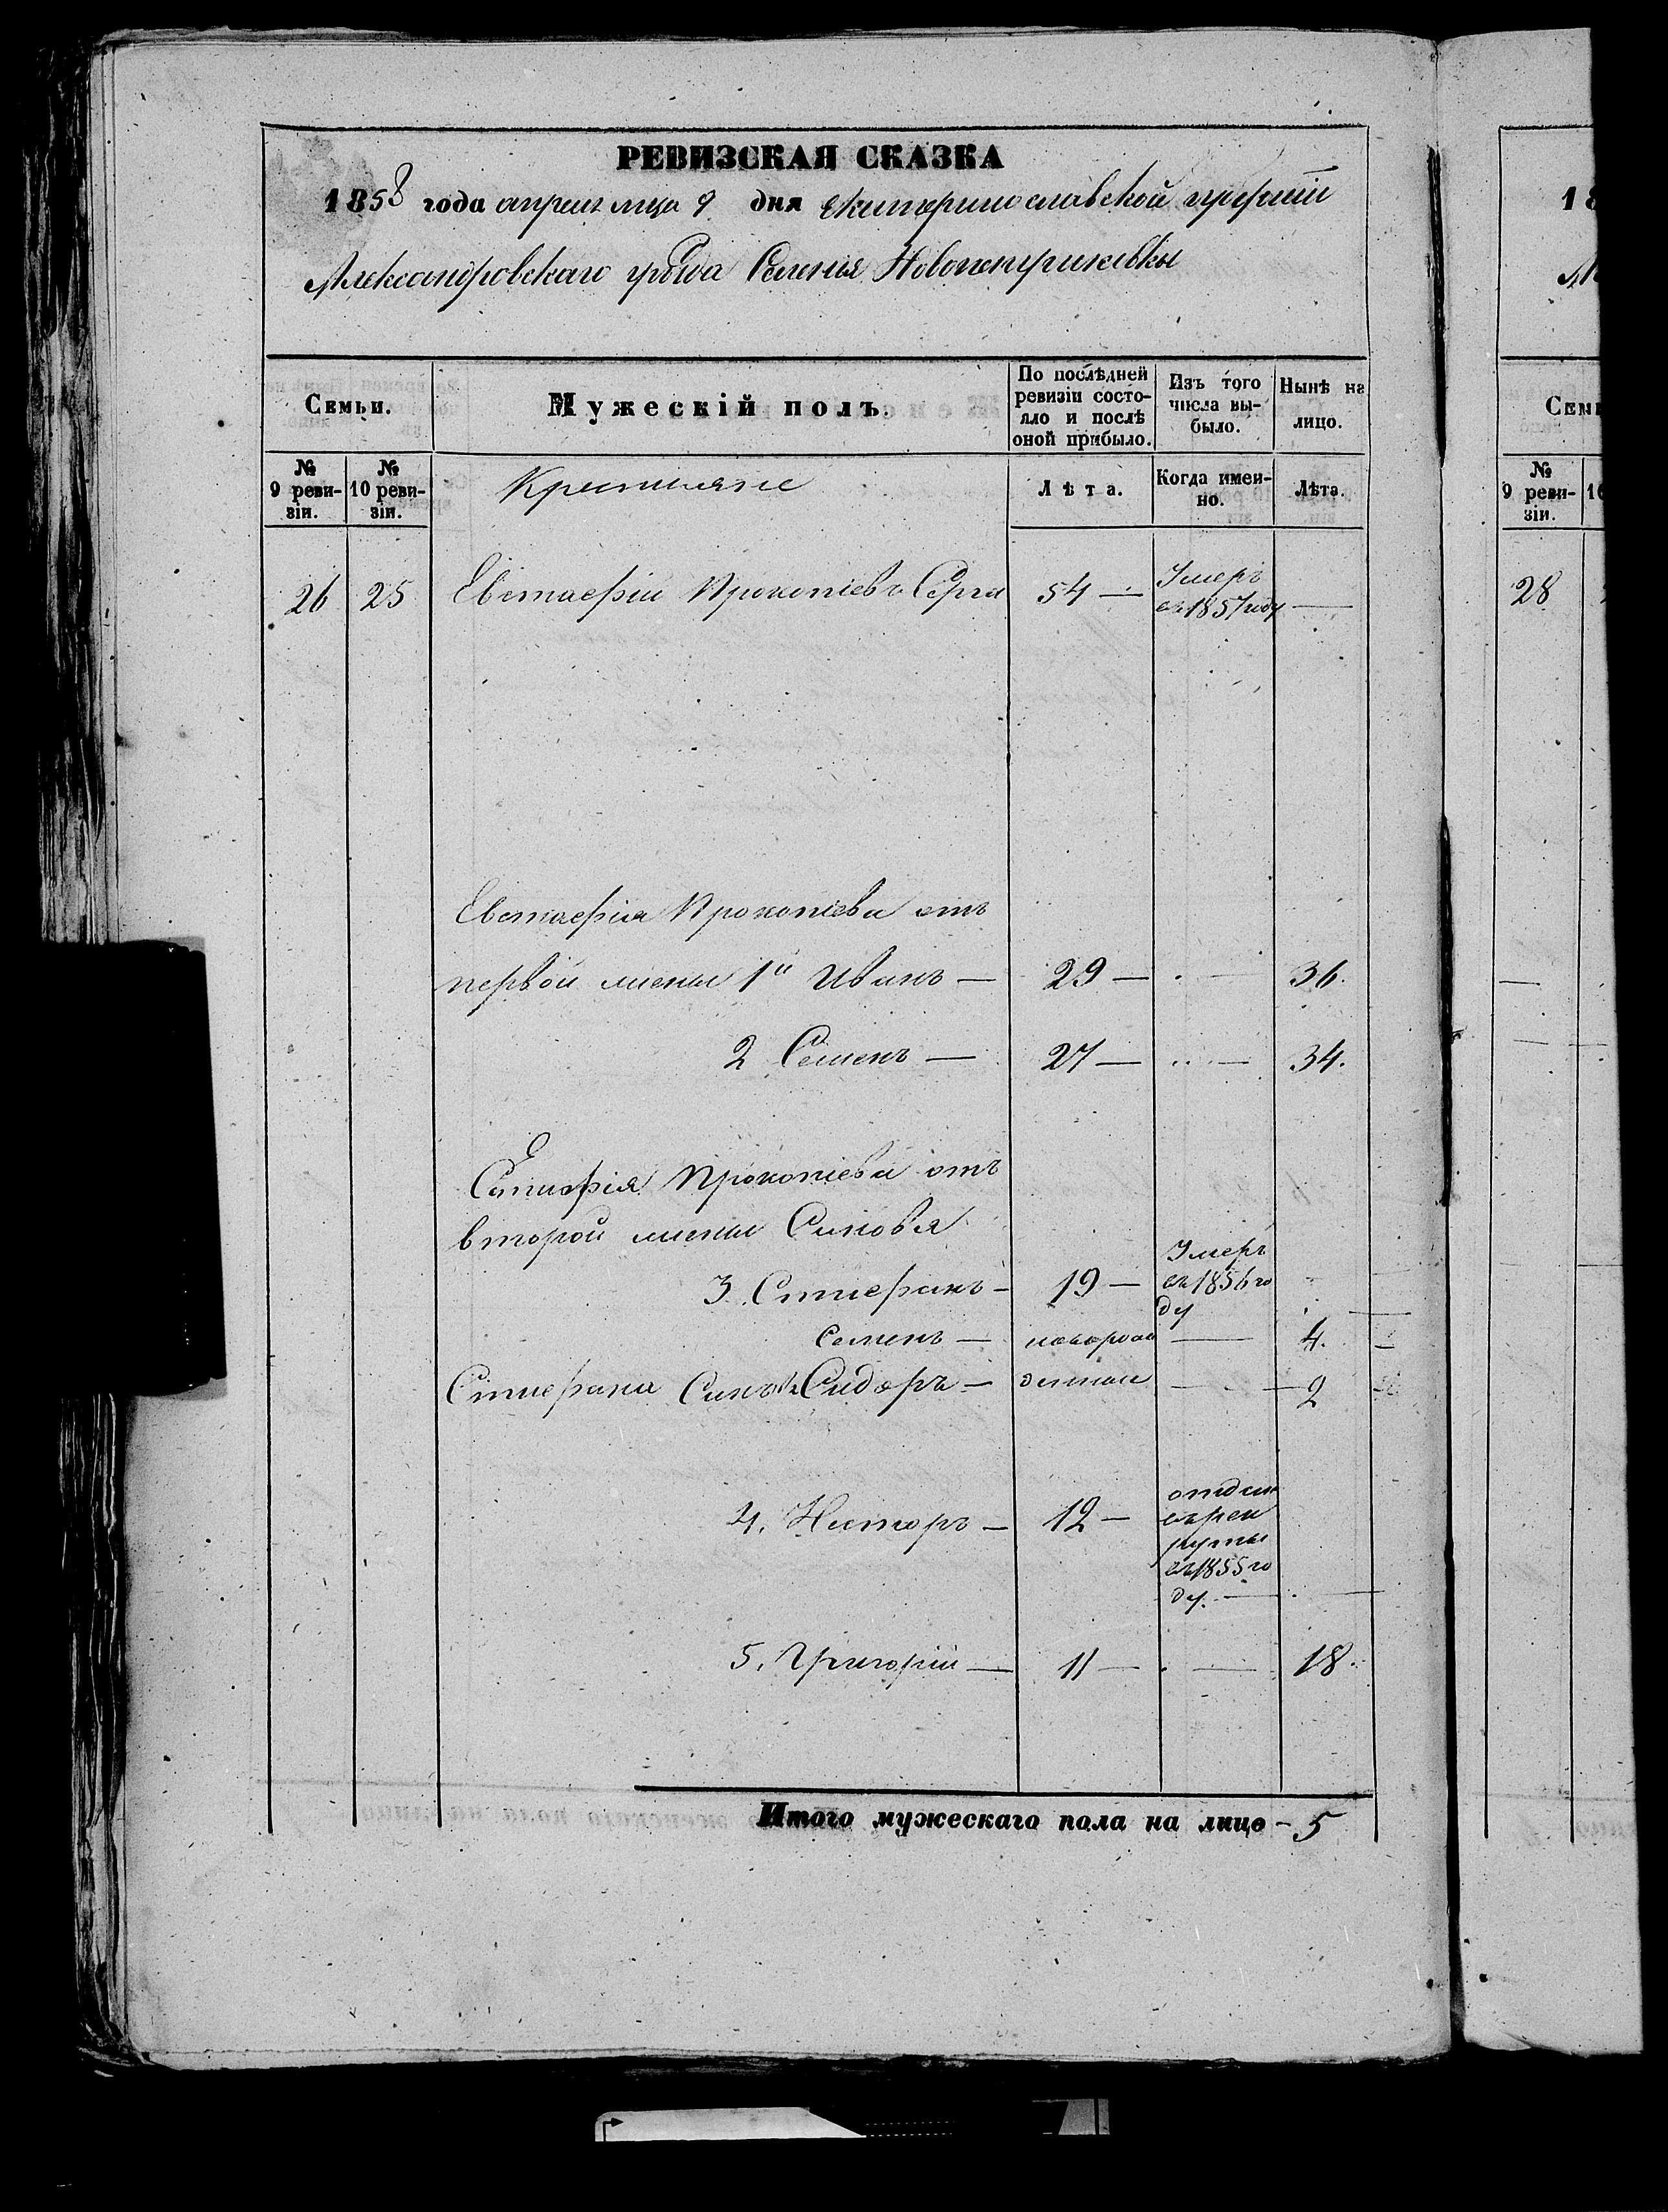 РЕВИЗСКАЯ СКАЗКА
1858 года апреля мца 9 дня Екатеринославской губерніи
Александровскаго уѣзда Селенія Новопетриковки
Семьи.
Мужескій полъ.
По послѣдней ревизіи состояло и послѣ оной прибыло.
Изъ того числа выбыло.
Нынѣ на лицо.
№ 9 ревизіи.
№ 10 ревизіи.
Крестьяне
Лѣта.
Когда именно.
Лѣта.
26 25 Евстафій Прокопіевъ Серга 54 — Умеръ въ 1857 году —
Евстафія Прокопіева отъ
первой жены 1й Иванъ — 29 — — 36.
2 Семенъ — 27 — — 34.
Евстафія Прокопіева отъ
второй жены Сыновья
3. Стефанъ — 19 — Умеръ въ 1856 го
ду —
Семенъ — новорож — 4.
Стефана Сыновья Сидоръ — денные — 2
4. Несторъ — 12 — отдан
въ рек
руты
въ 1855 го
ду. —
5. Григорій — 11 — — 18.
Итого мужескаго пола на лицо – 5
18
Сем
№ 9 ревизіи.
28